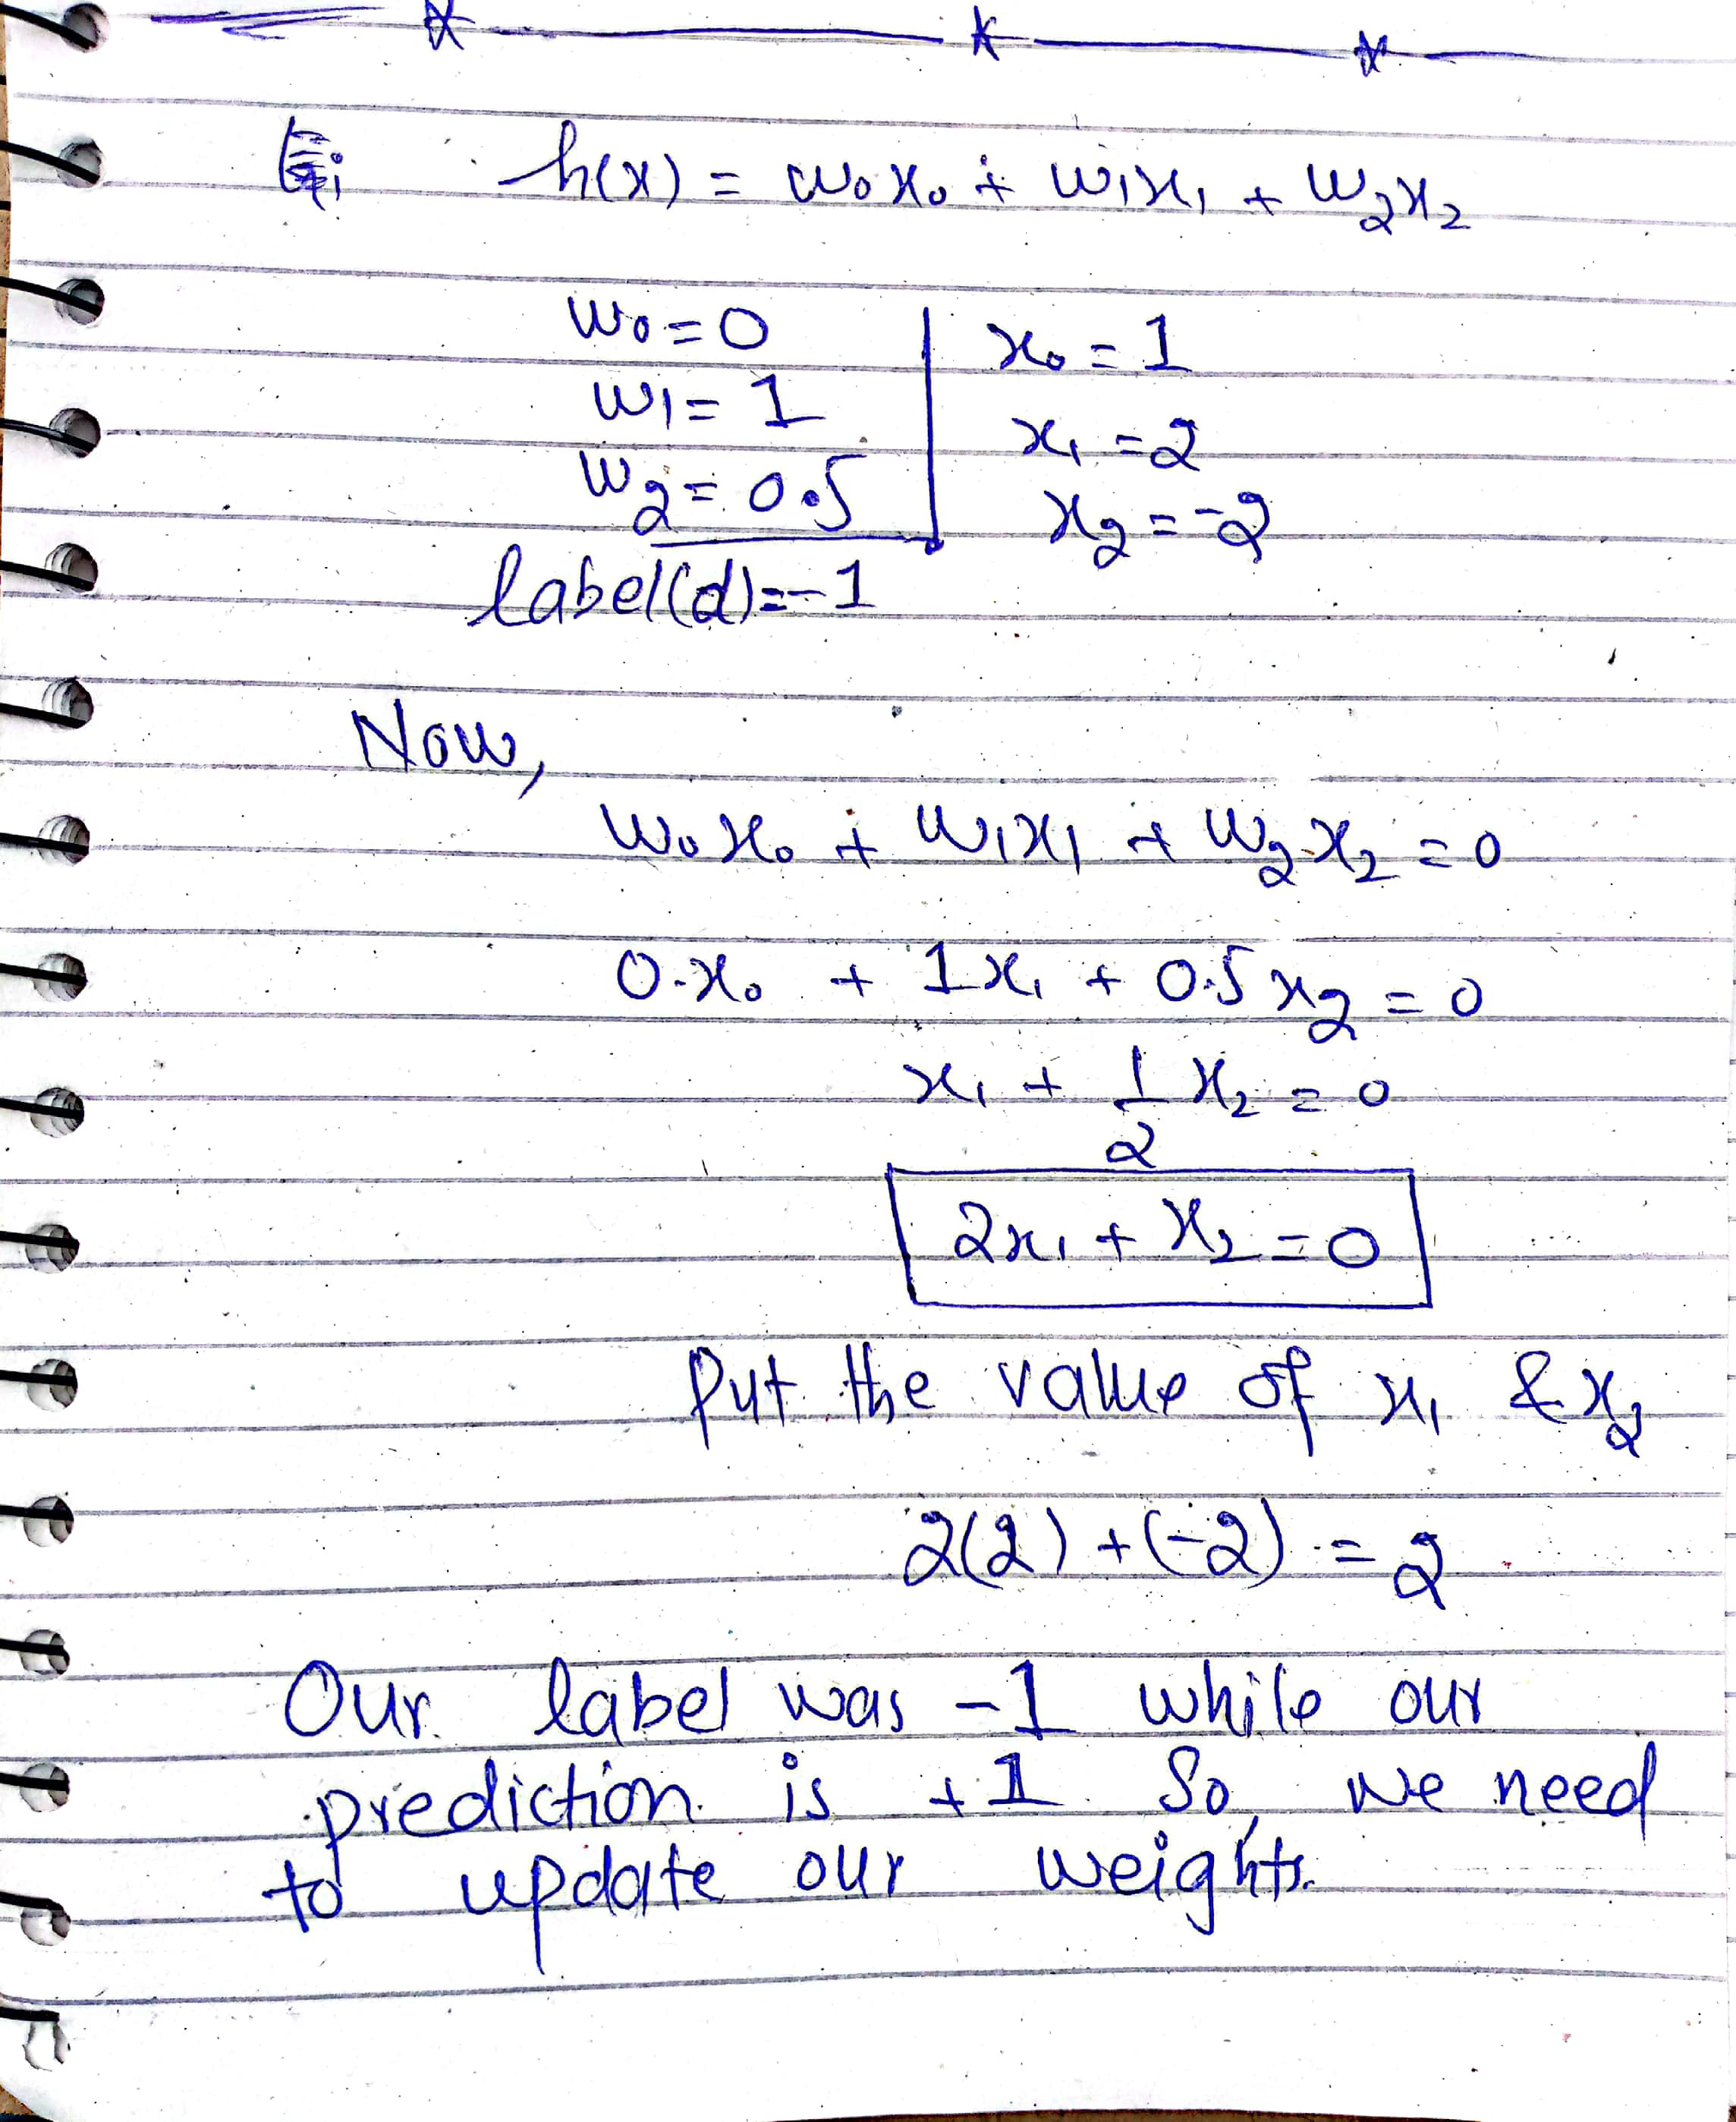 h(x) = w₀x₀ + w₁x₁ + w₂x₂
w₀ = 0
x₀ = 1
w₁ = 1
x₁ = 2
w₂ = 0.5
x₂ = -2
label(d) = -1
Now,
w₀x₀ + w₁x₁ + w₂x₂ = 0
0.x₀ + 1x₁ + 0.5x₂ = 0
x₁ + 1/2 x₂ = 0
2x₁ + x₂ = 0
Put the value of x₁ & x₂
2(2) + (-2) = 2
Our label was -1 while our
prediction is +1. So, we need
to update our weights.